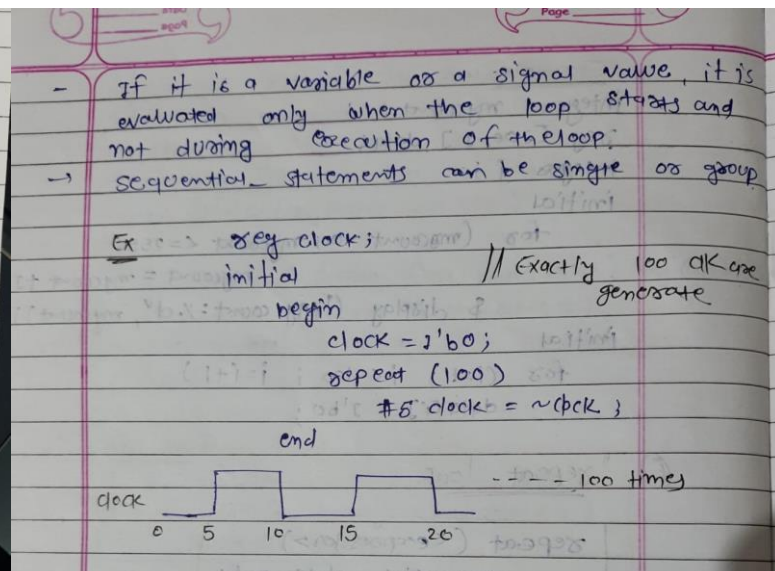 Page
- If it is a variable or a signal value, it is
evaluated only when the loop starts and
not during execution of the loop.
→ sequential statements can be single or group
Ex reg clock;
initial // Exactly 100 clk are
generate
begin
clock = 1'b0;
repeat (100)
#5 clock = ~clock;
end
clock - - - - 100 times
0 5 10 15 20